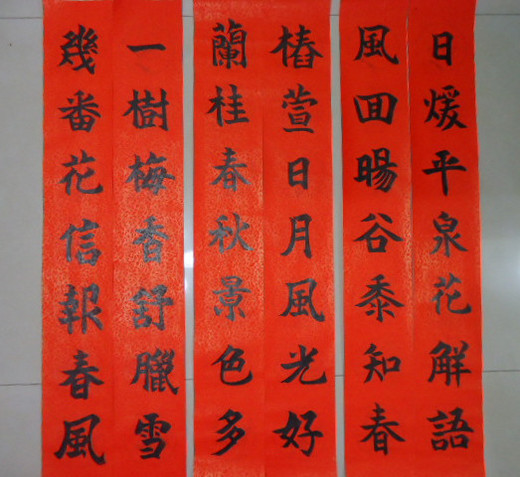 日煖平泉花解語
風囬暘谷黍知春
椿萱日月風光好
蘭桂春秋景色多
一樹梅香舒臘雪
幾番花信報春風